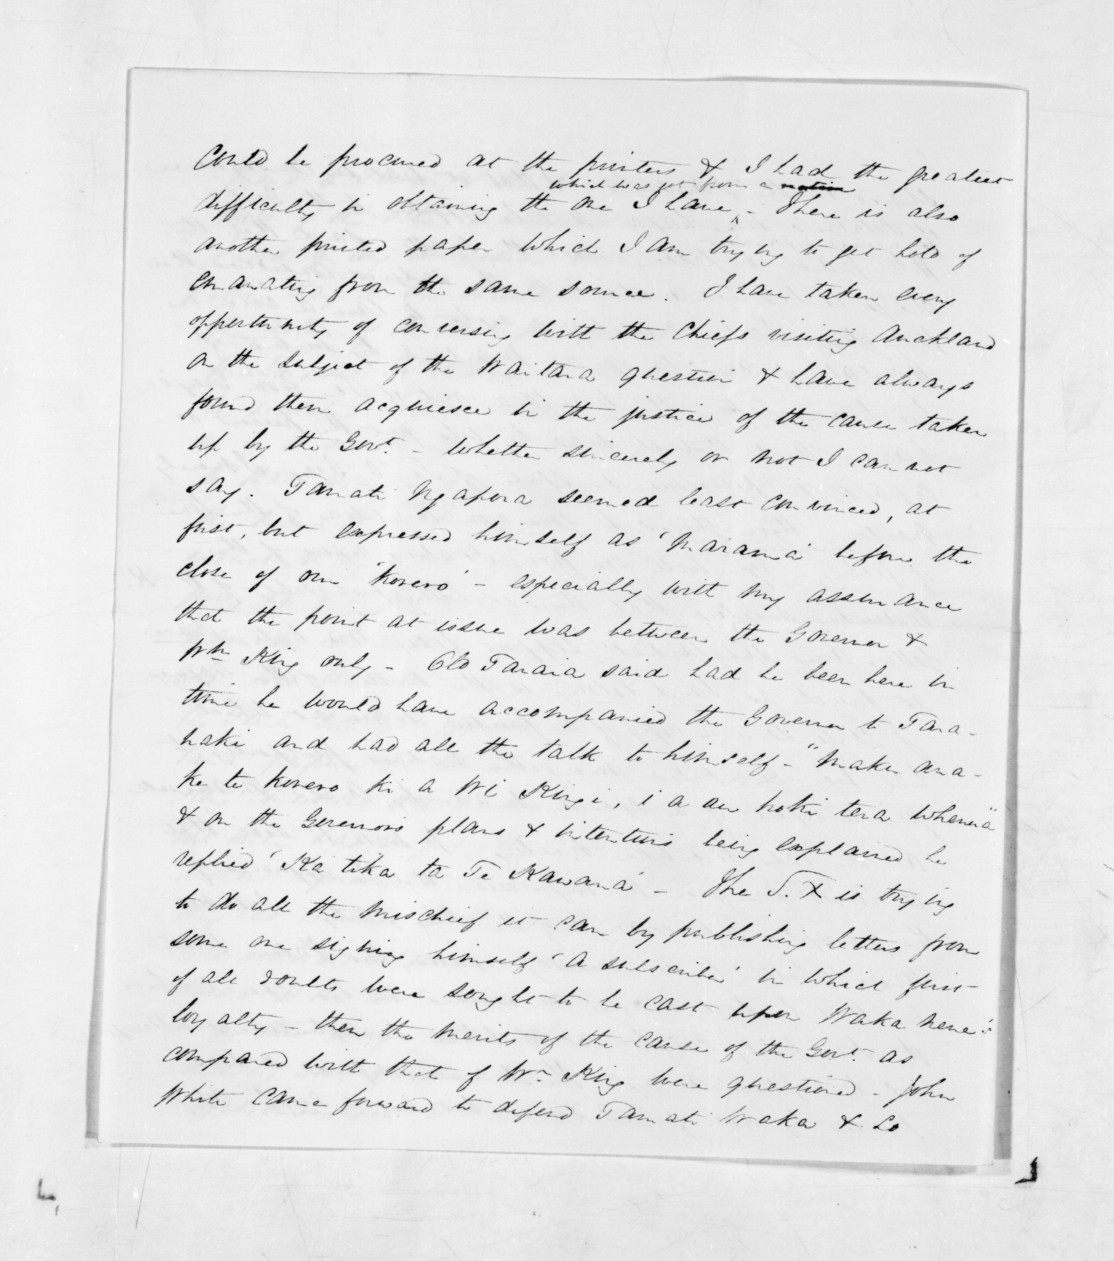 could be procured at the printers & I had the greatest
which was got from a native
difficulty in obtaining the one I have - There is also
another printed paper which I am trying to get hold of
emanating from the same source. I have taken every
opportunity of conversing with the Chiefs visiting Auckland
on the subject of the Waitara question & have always
found them acquiesce in the justice of the cause taken
up by the Govt. - whether sincerely or not I can not
say. Tamati Ngapora seemed least convinced, at
first, but expressed himself as 'Marama' before the
close of our 'korero' - especially with my assurance
that the point at issue was between the Governor &
Wm King only - Old Taraia said had he been here in
time he would have accompanied the Governor to Tara-
naki and had all the talk to himself - "Maku ana-
ke te korero ki a Wi Kingi, i a au hoki tera whenua"
& on the Governors plans & intentions being explained he
replied 'Ka tika ta Te Kawana' - The S. X is trying
to do all the mischief it can by publishing letters from
some one signing himself 'A subscriber' in which first
of all doubts were sought to be cast upon Waka Nene's
loyalty - then the merits of the cause of the Govt. as
compared with that of Wm King were questioned - John
White came forward to defend Tamati Waka & so